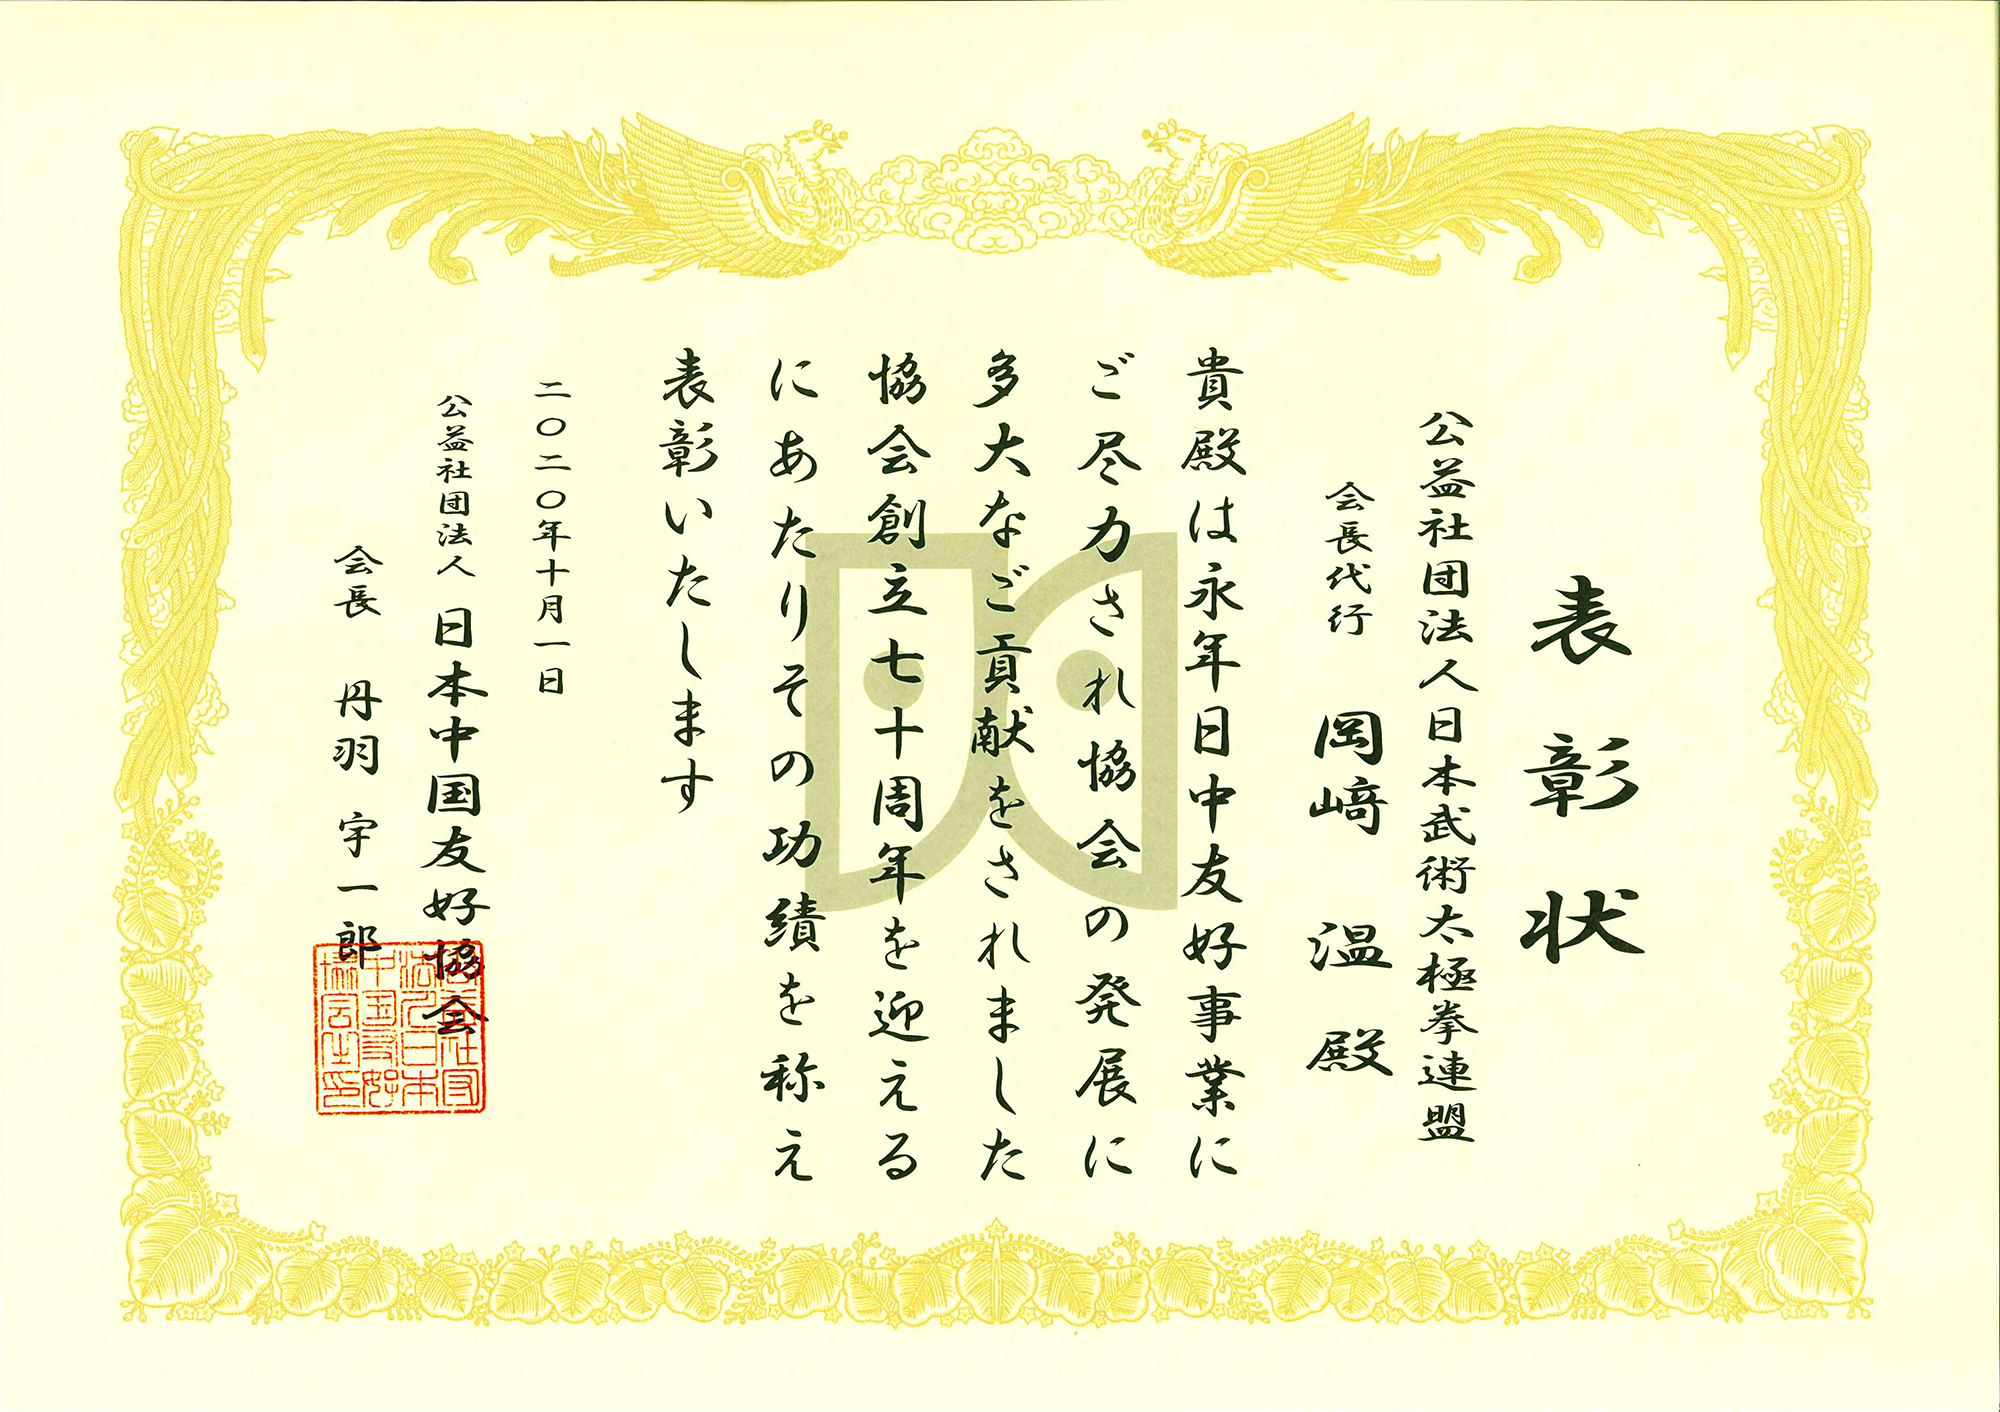 表彰状
公益社団法人日本武術太極拳連盟
会長代行 岡﨑 温 殿
貴殿は永年日中友好事業に
ご尽力され協会の発展に
多大なご貢献をされました
協会創立七十周年を迎える
にあたりその功績を称え
表彰いたします
二〇二〇年十月一日
公益社団法人 日本中国友好協会
会長 丹羽 宇一郎